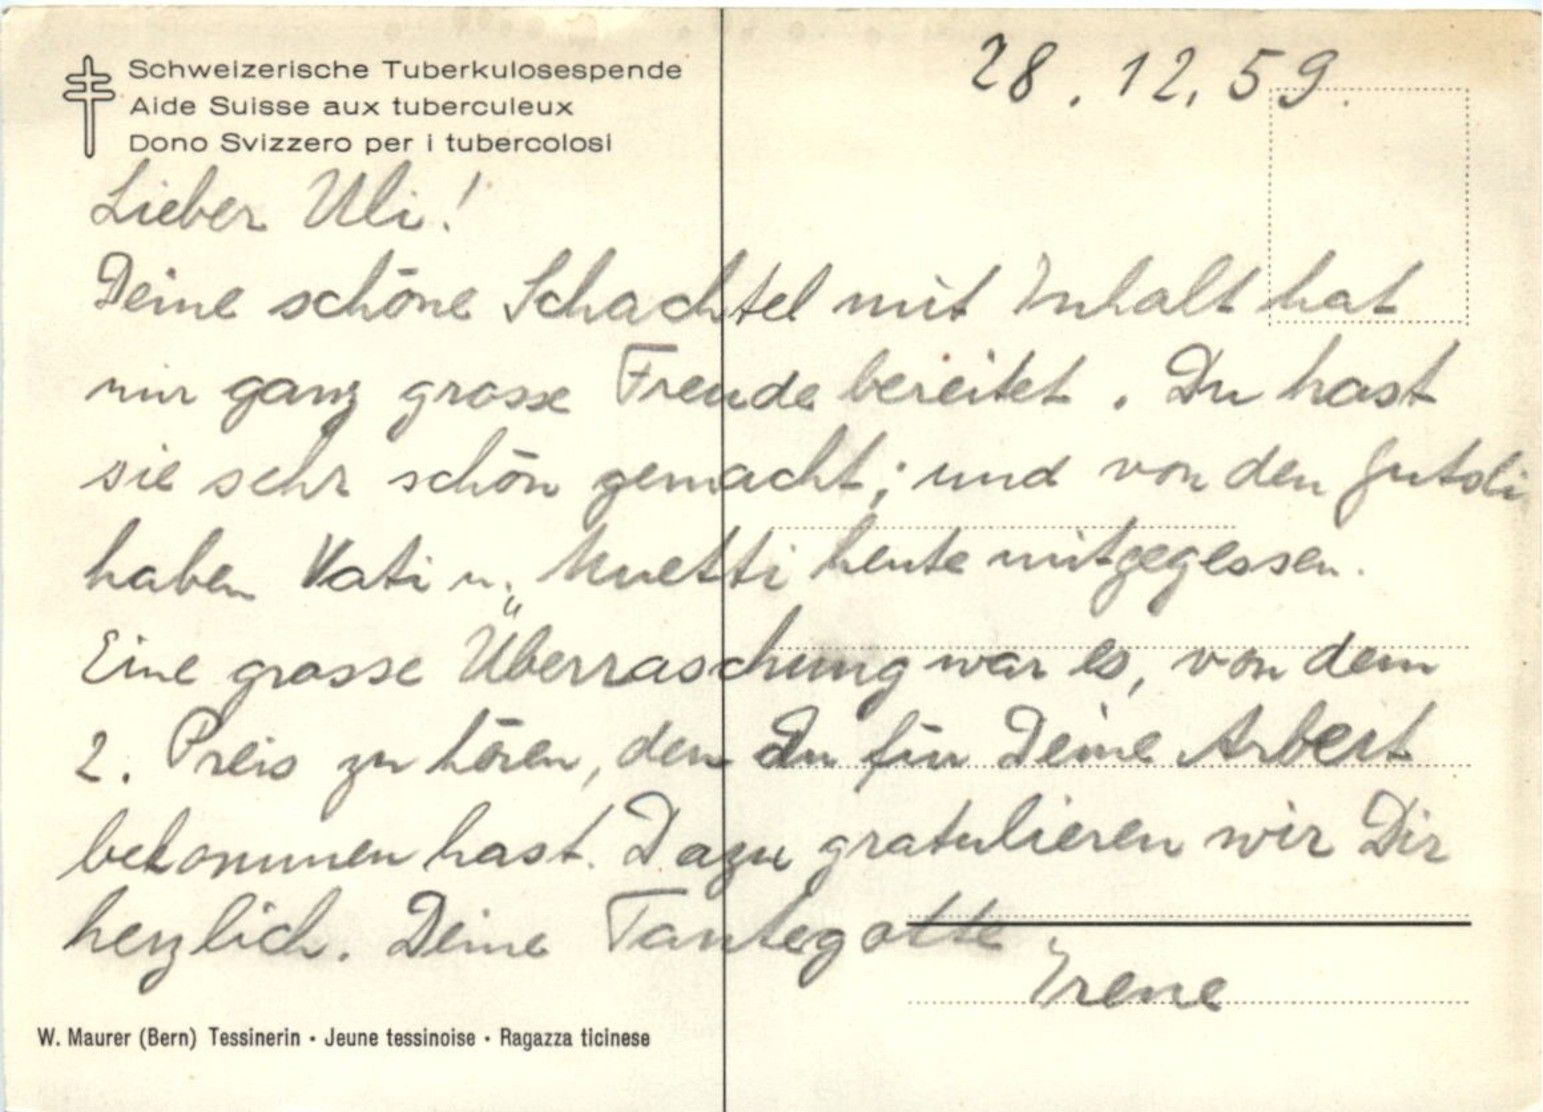 Schweizerische Tuberkulosespende
Aide Suisse aux tuberculeux
Dono Svizzero per i tubercolosi
28.12.59.
Lieber Uli!
Deine schöne Schachtel mit Inhalt hat
mir ganz grosse Freude bereitet. Du hast
sie sehr schön gemacht; und von den Gutsli
haben Vati u. Muetti heute mitgegessen.
Eine grosse Überraschung war es, von dem
2. Preis zu hören, den Du für Deine Arbeit
bekommen hast. Dazu gratulieren wir Dir
herzlich. Deine Tantegotte
Irene
W. Maurer (Bern) Tessinerin · Jeune tessinoise · Ragazza ticinese